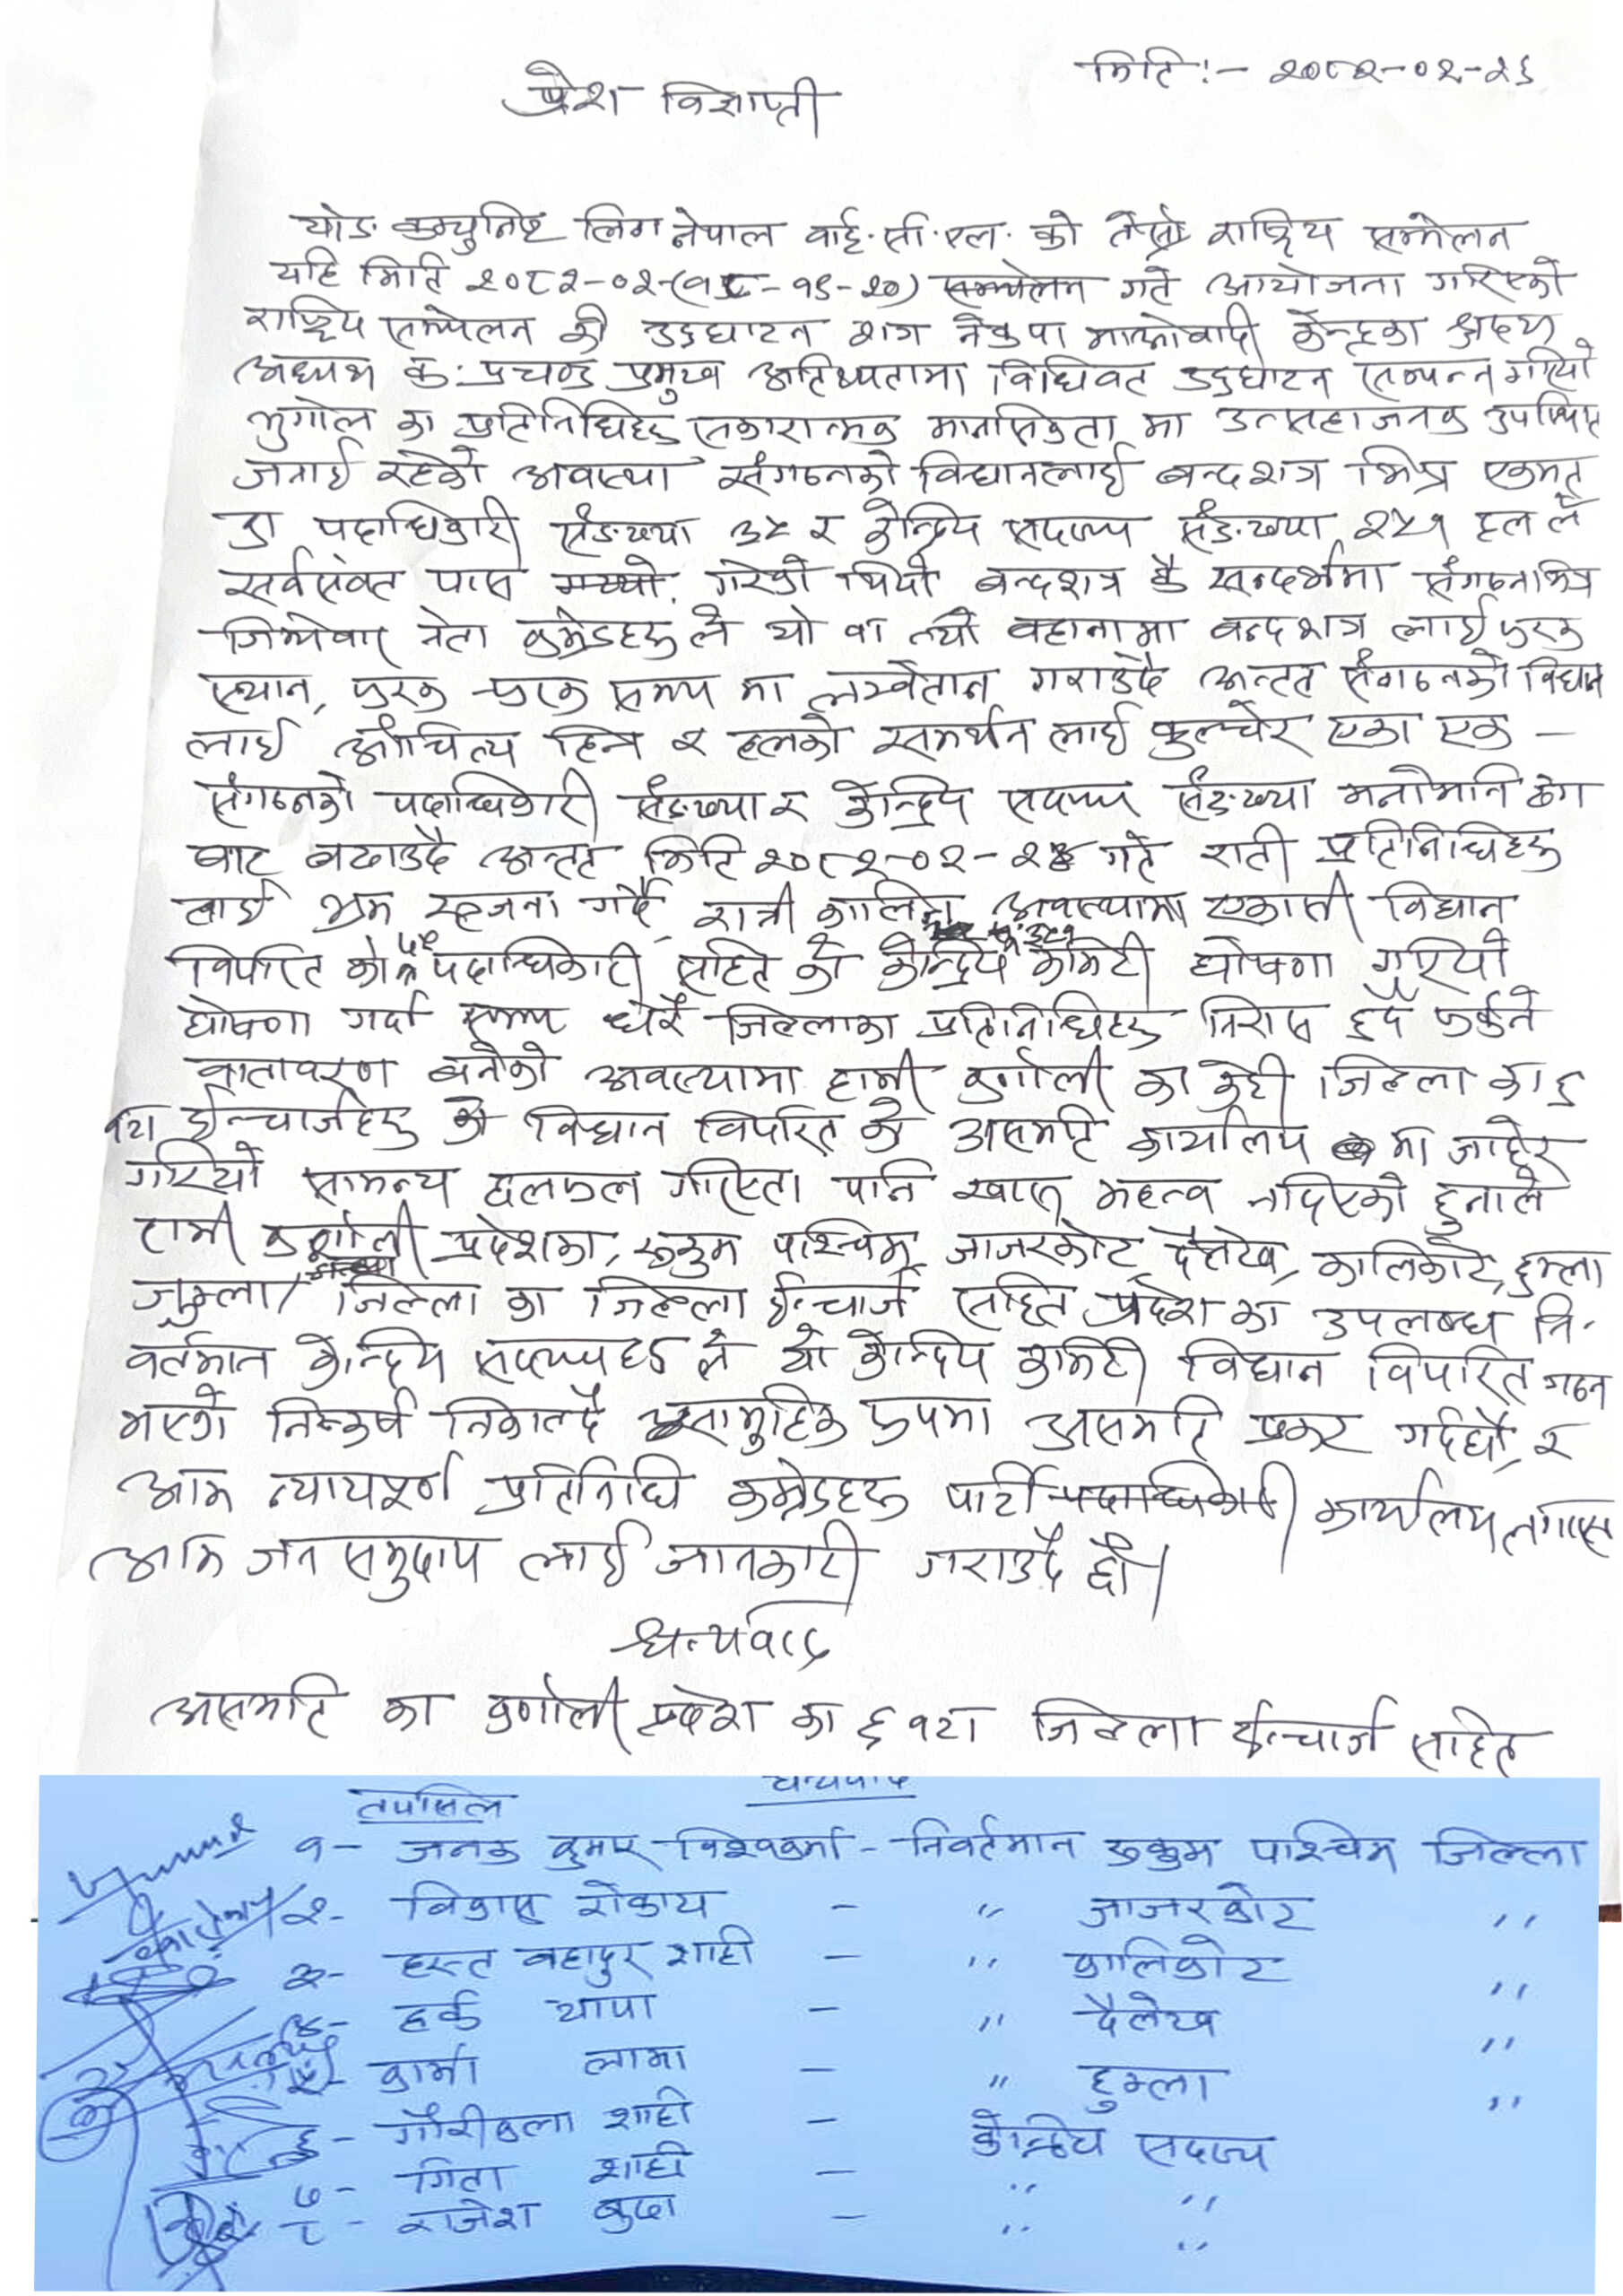 मिति:- २०८२-०२-२६
प्रेश विज्ञाप्ती
योङ कम्युनिष्ट लिग नेपाल वाई.सी.एल. को तेस्रो राष्ट्रिय सम्मेलन
यहि मिति २०८२-०२-(१८-१९-२०) सम्मेलन गते आयोजना गरिएको
राष्ट्रिय सम्मेलन को उद्घाटन शत्र नेकपा माओवादी केन्द्रका श्रदय
अध्यक्ष क. प्रचण्ड प्रमुख आतिथ्यतामा विधिवत उद्घाटन सम्पन्न गरियो
भुगोल का प्रतिनिधिहरु सकारात्मक मानसिकता मा उत्सहाजनक उपस्थित
जनाई रहेको अवस्था संगठनको विधानलाई बन्दशत्र भित्र एकमत
का पदाधिकारी संङख्या ३५ र केन्द्रिय सदस्य संङख्या २५१ हल ले
सर्वसंवत पास गरेको थियो बन्दशत्र कै सन्दर्भमा संगठनभित्र
जिम्मेवार नेता कमरेडहरु ले यो वा त्यो वहानामा बन्दशत्र लाई फरक
स्थान, फरक फरक समय मा लम्वेतान गराउदै अन्तत संगठनको विधान
लाई औचित्य हिन र हलको समर्थन लाई कुल्चेर एका एक –
संगठनको पदाधिकारी संङख्या र केन्द्रिय सदस्य संङख्या मनोमानि ढंग
वाट बढाउदै अन्तत मिति २०८२-०२-२४ गते राती प्रतिनिधिहरु
लाई भ्रम सृजना गर्दै रात्री कालिन अवस्थामा एकासी विधान
विपरित को पदाधिकारी सहित को केन्द्रिय कमिटी घोषणा गरियो
घोषणा गर्दा समय धेरै जिल्लाका प्रतिनिधिहरु निरास हुदै फर्कने
वातावरण बनेको अवस्थामा हामी कर्णाली का केही जिल्ला का ६
वटा ईन्चार्जहरु को विधान विपरित को असमति कार्यालय मा जाहेर
गरियो सामन्य छलफल गरिएता पनि खास महत्व नदिएको हुनाले
हामी कर्णाली प्रदेशका, रुकुम पाश्चिम, जाजरकोट, दैलेख, कालिकोट, हुम्ला
जुम्ला, जिल्ला का जिल्ला ईन्चार्ज सहित प्रदेश का उपलब्ध नि.
वर्तमान केन्द्रिय सदस्यहरु ले यो केन्द्रिय कमिटी विधान विपरित गठन
भएको निस्कर्ष निकाल्दै सामुहिक रुपमा असमति प्रकट गर्दछौ, र
आम न्यायपूर्ण प्रतिनिधि कमरेडहरु पार्टी पदाधिकारी कार्यालय लगाएत
आम जन समुदाय लाई जानकारी गराउदै छौ।
धन्यवाद
असमति का कर्णाली प्रदेश का ६ वटा जिल्ला ईन्चार्ज सहित
धन्यवाद
तपसिल
१- जनक कुमार विश्वकर्मा - निवर्तमान रुकुम पाश्चिम जिल्ला
२- विकास रोकाय - " जाजरकोट "
३- हस्त बहादुर शाही - " कालिकोट "
४- हर्क थापा - " दैलेख "
५- कार्मा लामा - " हुम्ला "
६- गौरीकला शाही - केन्द्रिय सदस्य
७- गिता शाही - " "
८- राजेश बुढा - " "